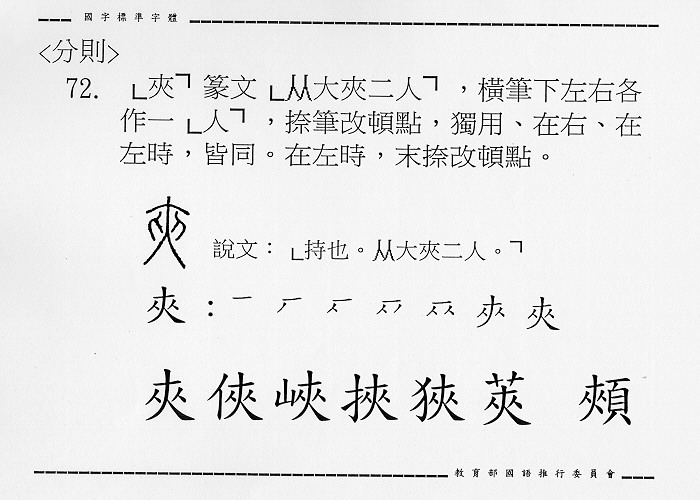 國字標準字體
<分則>
72. 「夾」篆文「从大夾二人」，橫筆下左右各
作一「人」，捺筆改頓點，獨用、在右、在
左時，皆同。在左時，末捺改頓點。
說文：「持也。从大夾二人。」
夾：
夾 俠 峽 挾 狹 莢 頰
教育部國語推行委員會